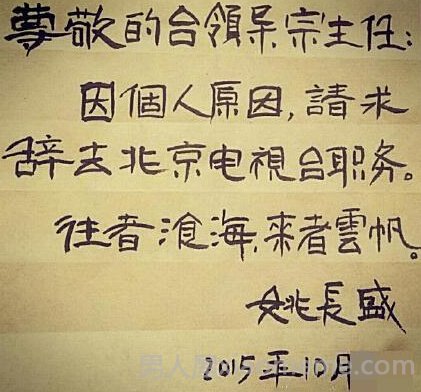 尊敬的台領导宗主任：
因個人原因,請求
辞去北京电視台职务。
往者滄海,來者雲帆。
姚長盛
2015年10月